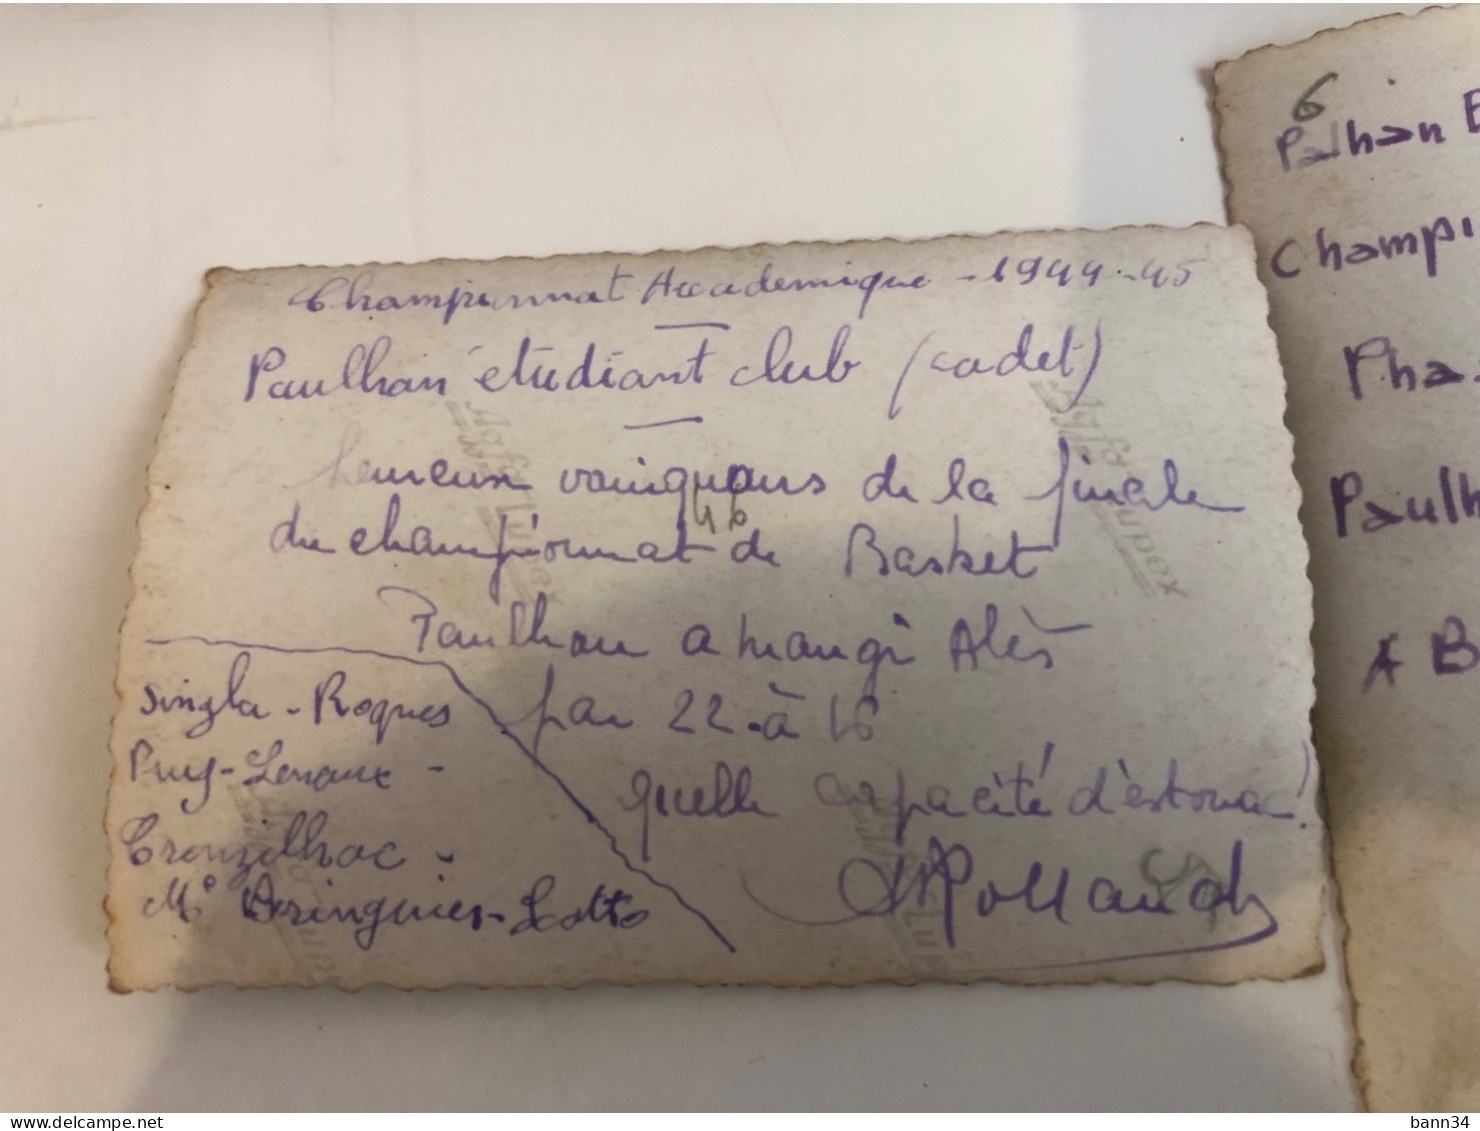 Championnat Accademique - 1944-45
Paulhan étudiant club (cadet)
heureux vainqueurs de la finale
46
du championnat de Basket
Paulhan a mangé Alès
par 22 - à 16
quelle capacité d'estomac!
Rolland
Singla - Roques
Puy - Lenoux -
Crouzilhac -
Me Vezinguies - Lotto
Agfa Lupex
Agfa Lupex
6
Palhan B
Champi
Pha
Paulh
A B
delcampe.net
bann34